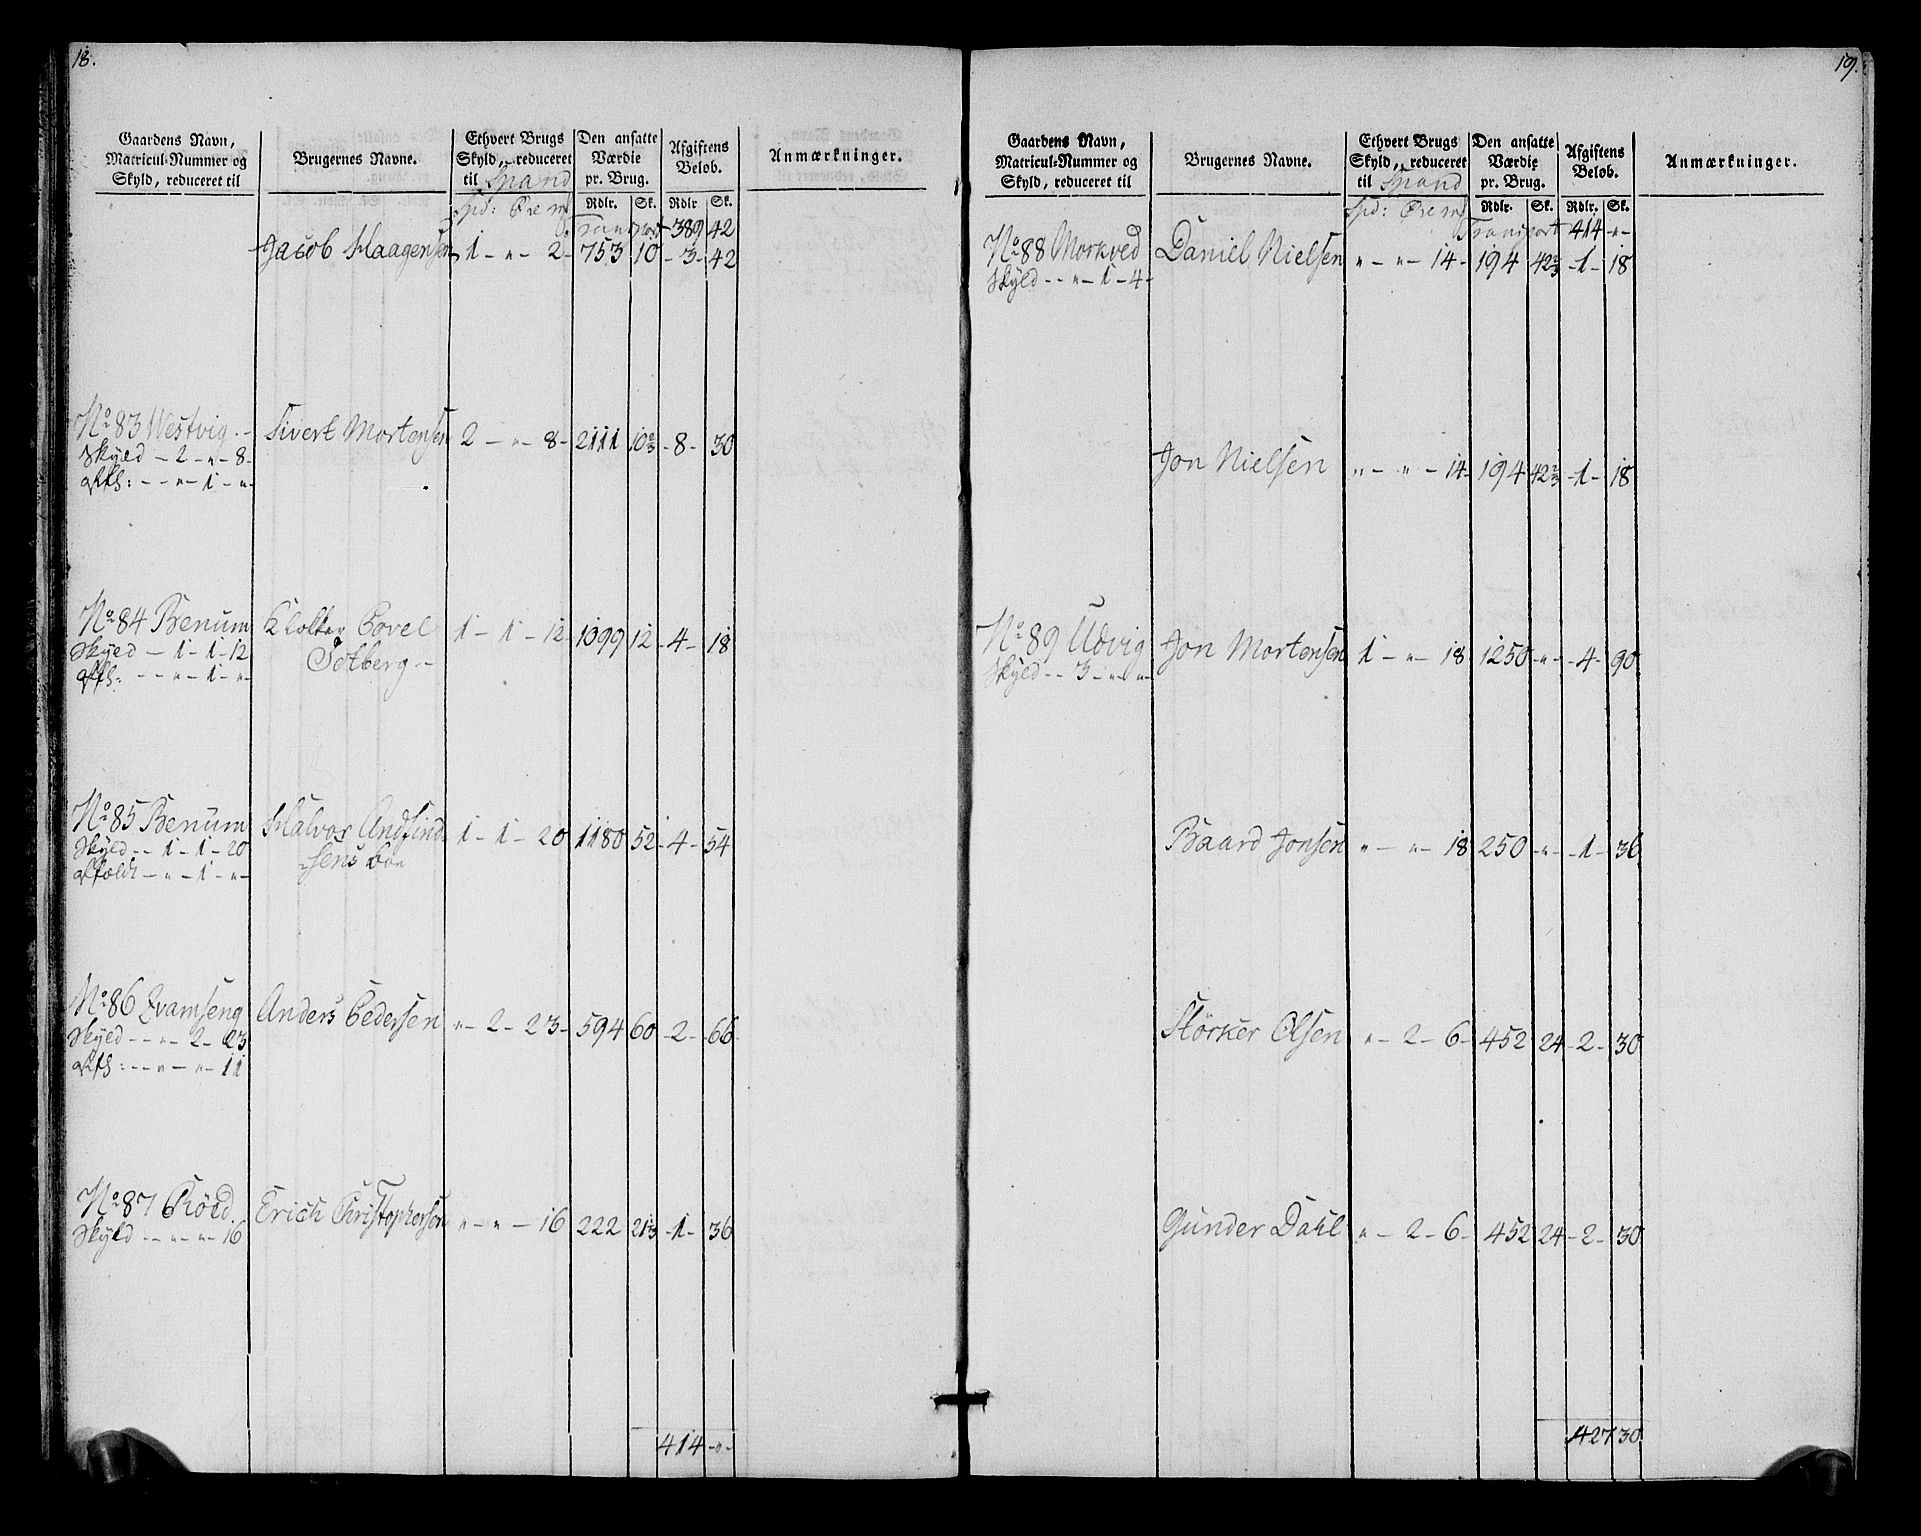 18.
Gaardens Navn, Matricul-Nummer og Skyld, reduceret til
Brugernes Navne.
Ethvert Brugs Skyld, reduceret til Spand
Den ansatte Værdie pr. Brug.
Afgiftens Beløb.
Anmærkninger.
Spd: Øre mk
Rdlr. Sk. Rdlr Sk.
Transport 389 42
Jacob Haagensen 1 - " - 2 - 753 10 - 3 - 42
No 83 Westvig - Sivert Mortensen 2 - " - 8 - 2111 10 2/3 - 8 - 30
Skyld - 2 - " - 8 -
Afh: - - " - 1 - " -
No 84 Benum Klokker Povel 1 - 1 - 12 - 1099 12 - 4 - 18
Skyld - 1 - 1 - 12 Sotberg -
Afh: - - " - 1 - " -
No 85 Benum Halvor Andfind 1 - 1 - 20 1180 52 - 4 - 54
Skyld - - 1 - 1 - 20 -sens boe
Afholdt - " - 1 - " -
No 86 Qvamseng Anders Pedersen " - 2 - 23 - 594 60 - 2 - 66
Skyld - - " - 2 - 23
Afh: - - " - " - 11
No 87 Røed. Erich Christophersen " - " - 16 222 21 1/3 - 1 - 36
Skyld - - " - " - 16
414 - " -
19.
Gaardens Navn, Matricul-Nummer og Skyld, reduceret til
Brugernes Navne.
Ethvert Brugs Skyld, reduceret til Spand
Den ansatte Værdie pr. Brug.
Afgiftens Beløb.
Anmærkninger.
Spd: Øre mk
Rdlr. Sk. Rdlr. Sk.
Transport 414 - " -
No 88 Morkved Daniel Nielsen " - " - 14 - 194 42 2/3 - 1 - 18
Skyld - - " - 1 - 4 -
Jon Nielsen " - " - 14 - 194 42 2/3 - 1 - 18
No 89 Udvig Jon Mortensen 1 - " - 18 1250 - " - 4 - 90
Skyld - - 3 - " - " -
Baard Jonsen " - " - 18 250 - " - 1 - 36
Størker Olsen " - 2 - 6 - 452 24 - 2 - 30
Gunder Dahl " - 2 - 6 - 452 24 - 2 - 30
427 30